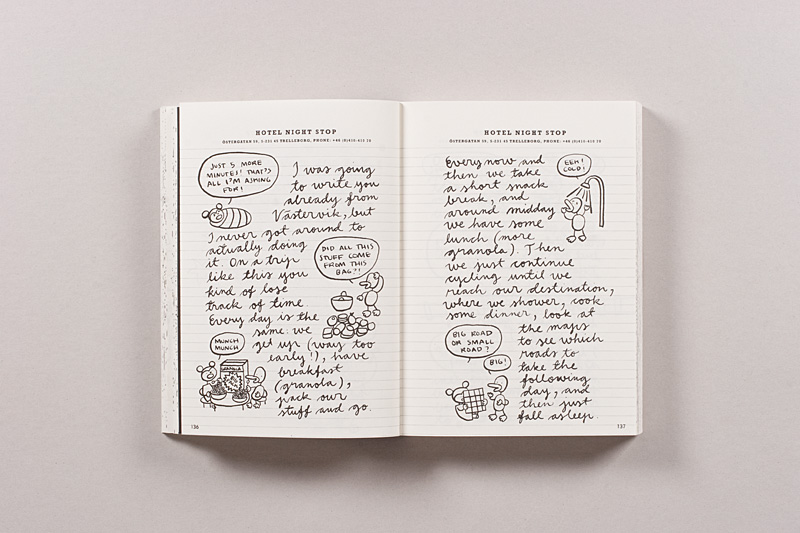 HOTEL NIGHT STOP
JUST 5 MORE
MINUTES! THAT'S
ALL I'M ASKING
FOR!
I was going
to write you
already from
Västervik, but
I never got around to
actually doing
it. On a trip
like this you
kind of lose
track of time.
Every day is the
same: we
get up (way too
early!), have
breakfast
(granola),
pack our
stuff and go.
DID ALL THIS
STUFF COME
FROM THIS
BAG?!
MUNCH
MUNCH
136
HOTEL NIGHT STOP
Every now and
then we take
a short snack
break, and
around midday
we have some
lunch (more
granola). Then
we just continue
cycling until we
reach our destination,
where we shower, cook
some dinner, look at
the maps
to see which
roads to
take the
following
day, and
then just
fall asleep.
EEK!
COLD!
BIG ROAD
OR SMALL
ROAD?
BIG!
137